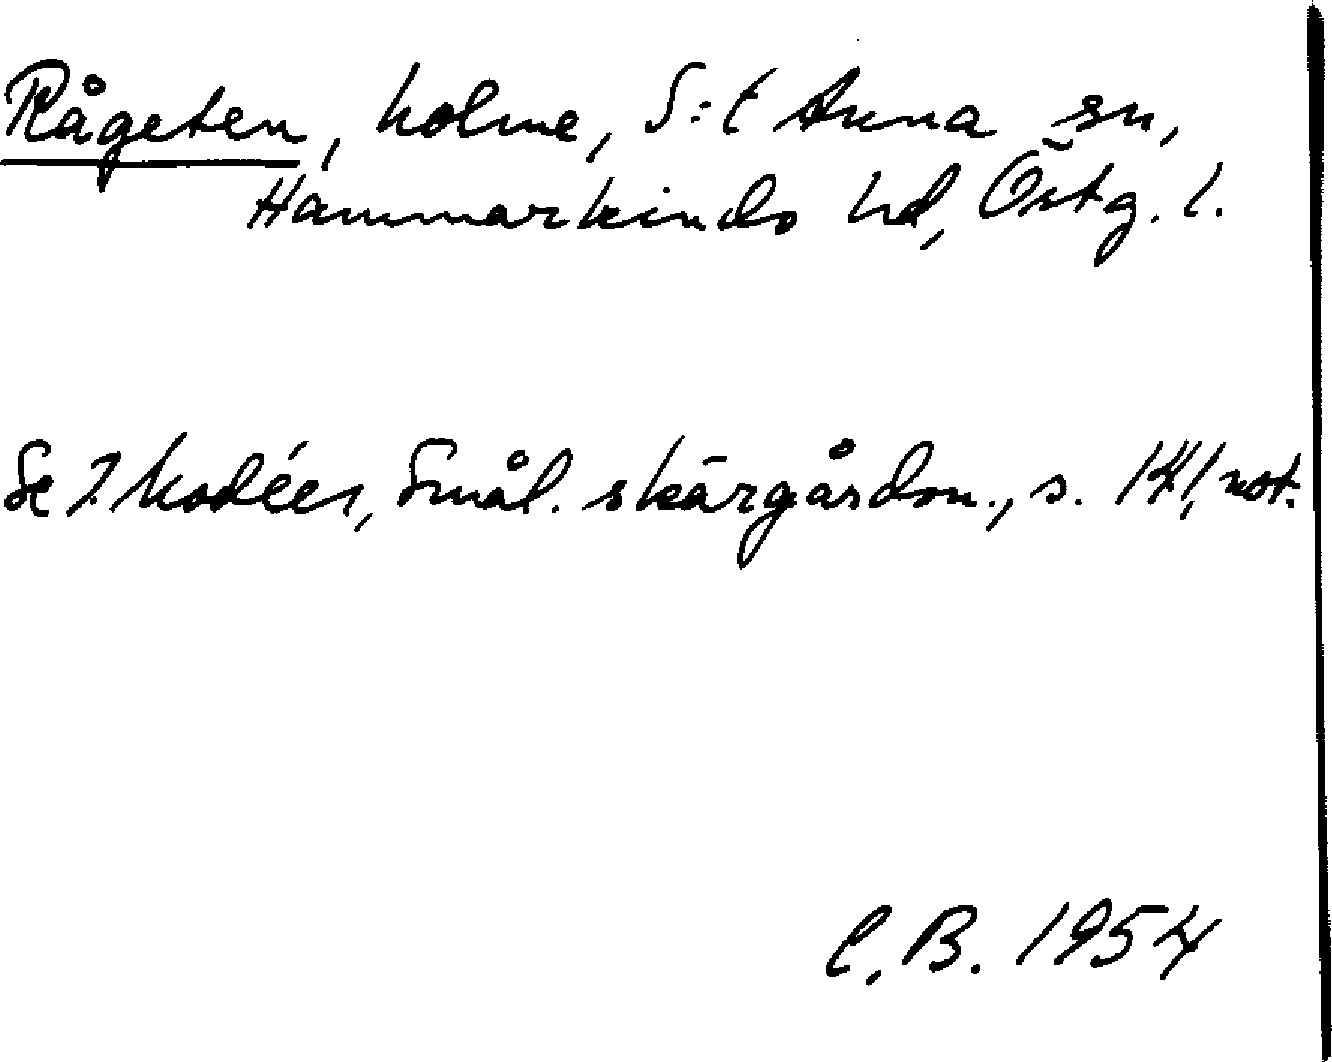 Rågeten, holme, S:t Anna sn,
Hammarkinds hd, Östg. l.
Se I. Modéer, Smål. skärgårdsn., s. 141, not.
C. B. 1954